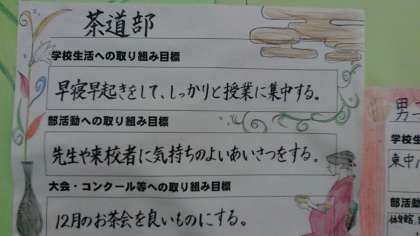 茶道部
学校生活への取り組み目標
早寝早起きをして、しっかりと授業に集中する。
部活動への取り組み目標
先生や来校者に気持ちのよいあいさつをする。
大会・コンクール等への取り組み目標
12月のお茶会を良いものにする。
男子
学校
東中
部活動